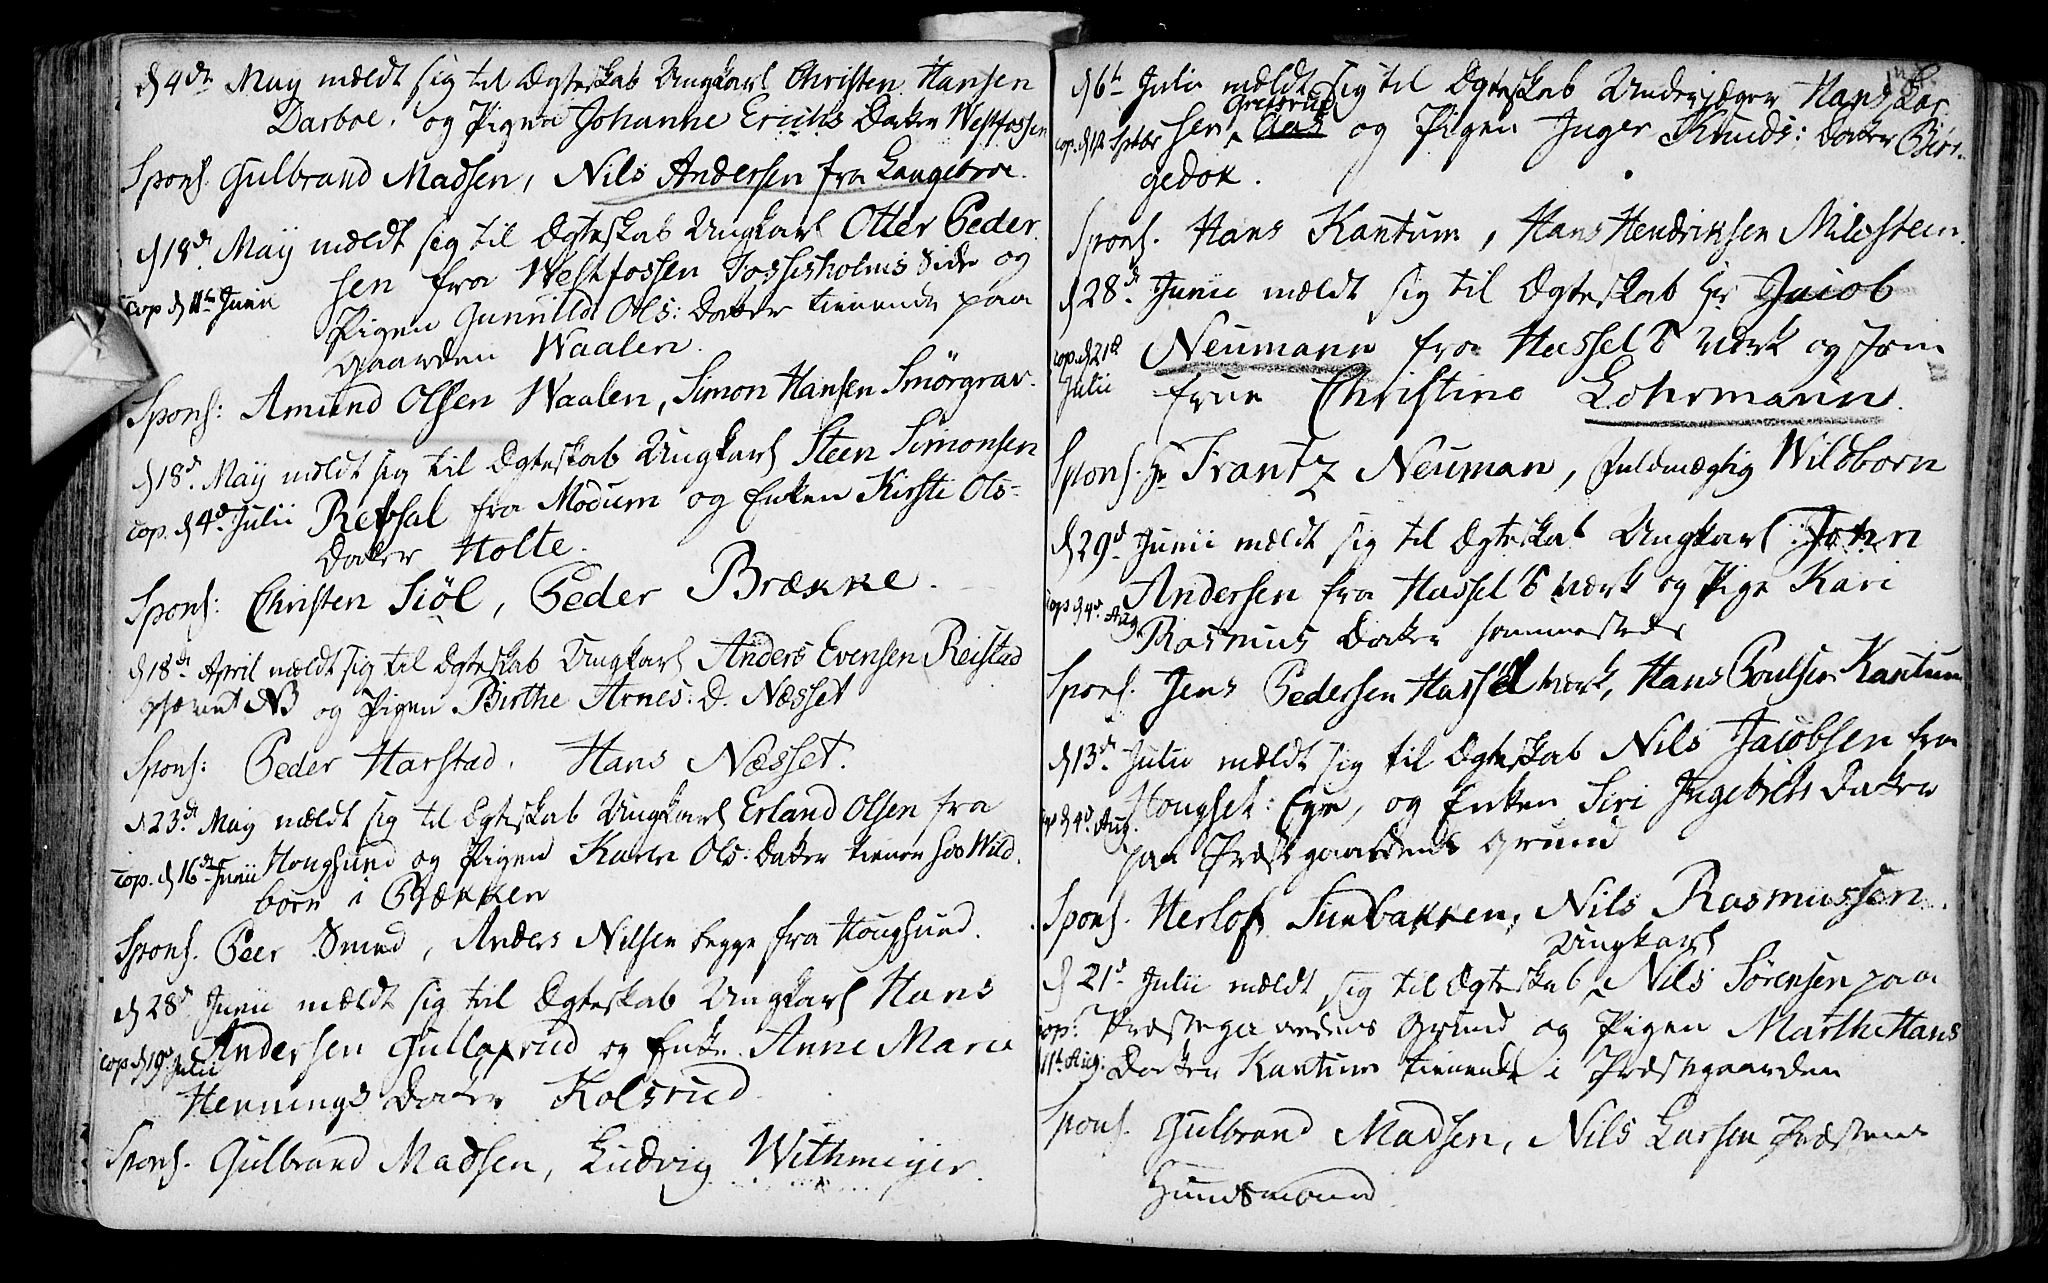 d 4de May meldt sig til Ægteskab Ungkarl Christen Hansen
Darboe. og Pigen Johanne Erichs Datter Westfossen
Spons. Gulbrand Madsen, Nils Andersen fra Langebroe.
d 18de May meldt sig til Ægteskab Ungkarl Otter Peder
sen fra Westfossen Fossesholms Side og
cop d 11te Junii
Pigen Gunnild Ols: Datter tienende paa
Gaarden Waalen.
Spons: Amund Olsen Waalen, Simon Hansen Smörgrav.
d 18de May meldt sig til Ægteskab Ungkarl Steen Simonsen
cop. d 4de Julii Refsal fra Modum og Enken Kirsti Ols-
Datter Holte.
Spons: Christen Siöl, Peder Brække.
d 18de April meldt sig til Ægteskab Ungkarl Anders Evensen Reistad
NB og Pigen Birthe Arnes: D. Næsset
Spons: Peder Harstad. Hans Næsset.
d 23de May meldt sig til Ægteskab Ungkarl Erland Olsen fra
cop. d 16de Junii Hougsund og Pigen Karen Ols: Datter tienende hos Wild
born i Bækken
Spons. Peer Smed, Anders Nilsen begge fra Hougsund.
d 28de Junii meldt sig til Ægteskab Ungkarl Hans
cop d 19de Julii Andersen Gullaprud og Enke Anne Marie
Hennings Datter Kolsrud
Spons. Gulbrand Madsen, Ludvig Withmeyer.
d 6te Julii meldt sig til Ægteskab Underjæger Hans Lar
Grefsrud
cop. d 12 Sptbr sen Aas og Pigen Inger Knuds: Datter Bür-
gedok.
Spons. Hans Kantum, Hans Hendriksen Milesteen.
d 28de Junii meldt sig til Ægteskab Hr Jacob
cop. d 21de Neumann fra Hassels Værk og Jom
Julii frue Christine Lohrmann.
Spons. Hr Frantz Neuman, Fuldmægtig Wildborn
d 29de Junii meldt sig til Ægteskab Ungkarl John
Andersen fra Hassels Værk og Pige Kari
cop d 4de Aug.
Rasmus Datter sammesteds
Spons. Jens Pedersen Hassel Værk, Hans Poulsen Kantum
d 13de Julii meldt sig til Ægteskab Nils Jacobsen fra
cop d 4de Aug. Hougset: Eye, og Enken Siri Ingebrets Datter
paa Præstegaardens Grund
Spons. Herlof Sundbakken, Nils Rasmussen.
Ungkarl
d 21de Julii meldt sig til Ægteskab Nils Sörensen paa
cop. Præstegaardens Grund og Pigen Marthe Hans
11te Aug: Datter Kantum tienende i Præstegaarden
Spons. Gulbrand Madsen, Nils Larsen Præstens
Huusmand